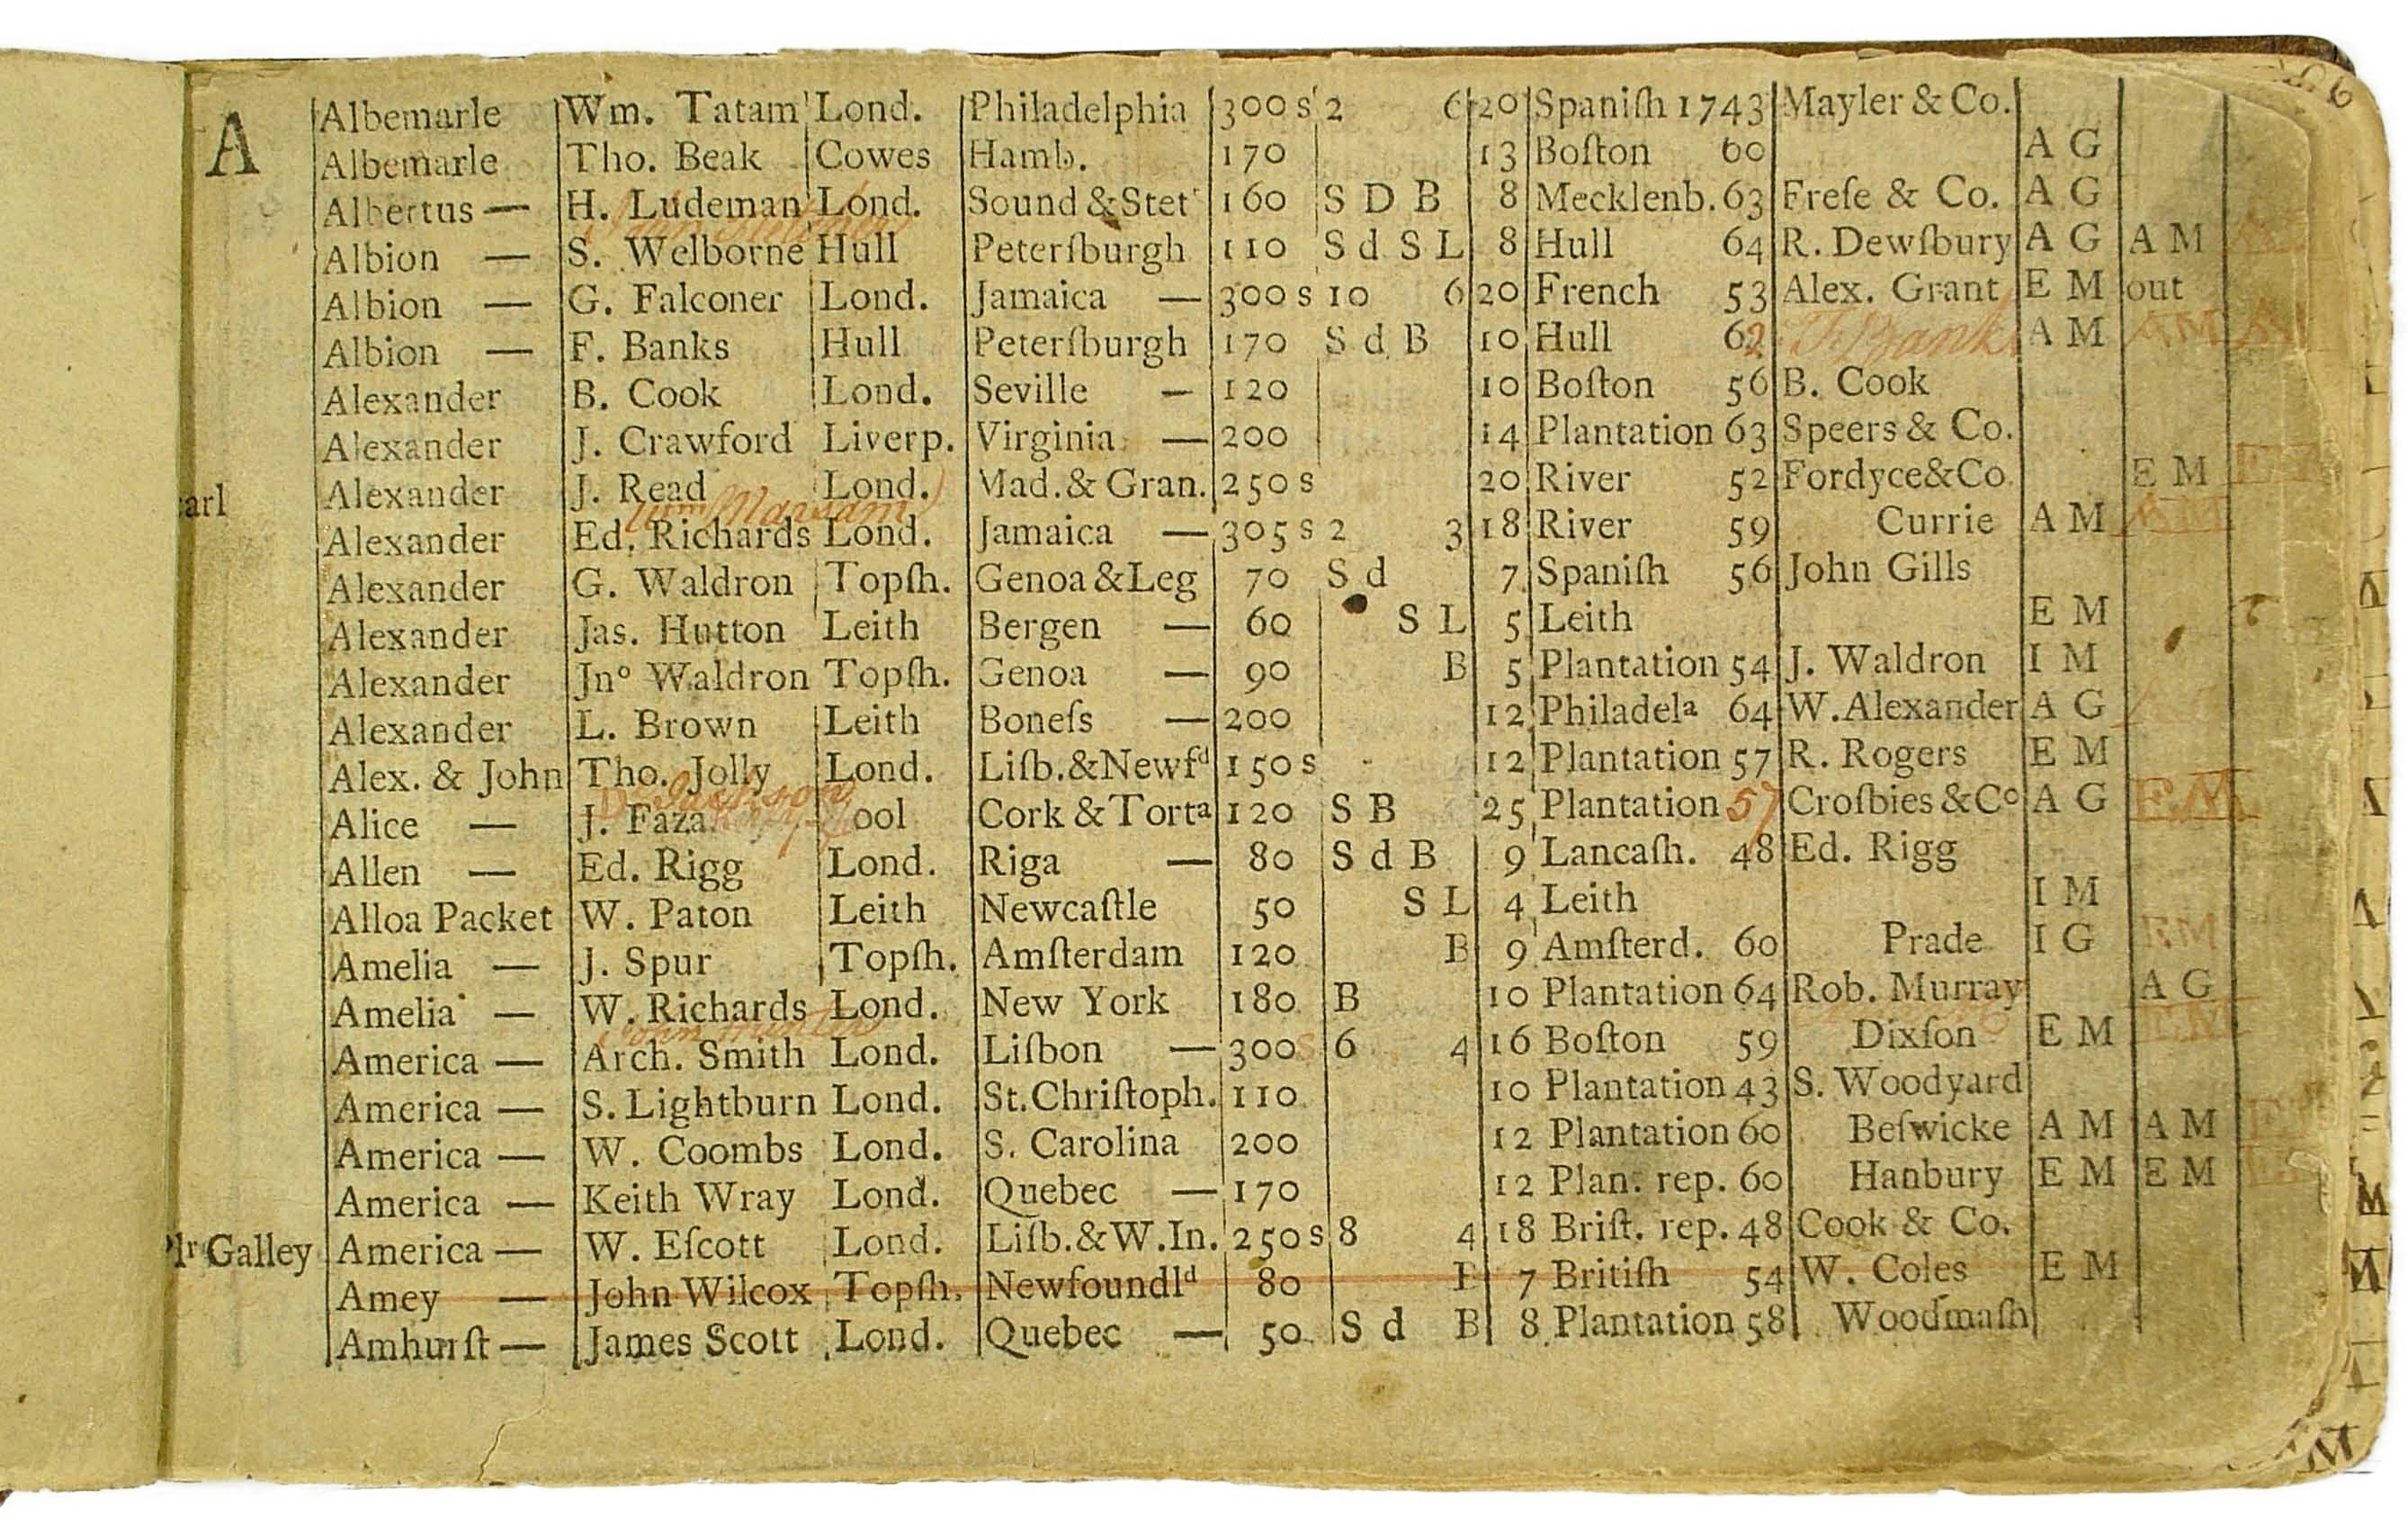 A Albemarle Wm. Tatam Lond. Philadelphia 300 s 2 6 20 Spaniſh 1743 Mayler & Co.
Albemarle Tho. Beak Cowes Hamb. 170 13 Boſton 60 A G
Albertus — H. Ludeman Lond. Sound & Stet 160 S D B 8 Mecklenb. 63 Freſe & Co. A G
Albion — S. Welborne Hull Peterſburgh 110 S d S L 8 Hull 64 R. Dewſbury A G A M
Albion — G. Falconer Lond. Jamaica — 300 s 10 6 20 French 53 Alex. Grant E M out
Albion — F. Banks Hull Peterſburgh 170 S d B 10 Hull 62 F Banks A M AM
Alexander B. Cook Lond. Seville — 120 10 Boſton 56 B. Cook
Alexander J. Crawford Liverp. Virginia — 200 14 Plantation 63 Speers & Co.
arl Alexander J. Read Lond. Mad. & Gran. 250 s 20 River 52 Fordyce&Co. E M
Alexander Ed. Richards Lond. Jamaica — 305 s 2 3 18 River 59 Currie A M
Alexander G. Waldron Topſh. Genoa & Leg 70 S d 7 Spaniſh 56 John Gills
Alexander Jas. Hutton Leith Bergen — 60 S L 5 Leith E M
Alexander Jnº Waldron Topſh. Genoa — 90 B 5 Plantation 54 J. Waldron I M
Alexander L. Brown Leith Boneſs — 200 12 Philadelª 64 W. Alexander A G
Alex. & John Tho. Jolly Lond. Liſb.&Newfᵈ 150 s 12 Plantation 57 R. Rogers E M
Jackson
Alice — J. Faza ool Cork & Tortª 120 S B 25 Plantation 57 Croſbies & Cº A G EM
Allen — Ed. Rigg Lond. Riga — 80 S d B 9 Lancaſh. 48 Ed. Rigg
Alloa Packet W. Paton Leith Newcaſtle 50 S L 4 Leith I M
Amelia — J. Spur Topſh. Amſterdam 120 B 9 Amſterd. 60 Prade I G EM
Amelia — W. Richards Lond. New York 180 B 10 Plantation 64 Rob. Murray A G
America — Arch. Smith Lond. Liſbon — 300 s 6 4 16 Boſton 59 Dixſon E M EM
America — S. Lightburn Lond. St. Chriſtoph. 110 10 Plantation 43 S. Woodyard
America — W. Coombs Lond. S. Carolina 200 12 Plantation 60 Beſwicke A M A M
America — Keith Wray Lond. Quebec — 170 12 Plan. rep. 60 Hanbury E M E M
Galley America — W. Eſcott Lond. Liſb.&W.In. 250 s 8 4 18 Briſt. rep. 48 Cook & Co.
Amey — John Wilcox Topſh. Newfoundlᵈ 80 7 Britiſh 54 W. Coles E M
Amhurſt — James Scott Lond. Quebec — 50 S d B 8 Plantation 58 Woodmaſh